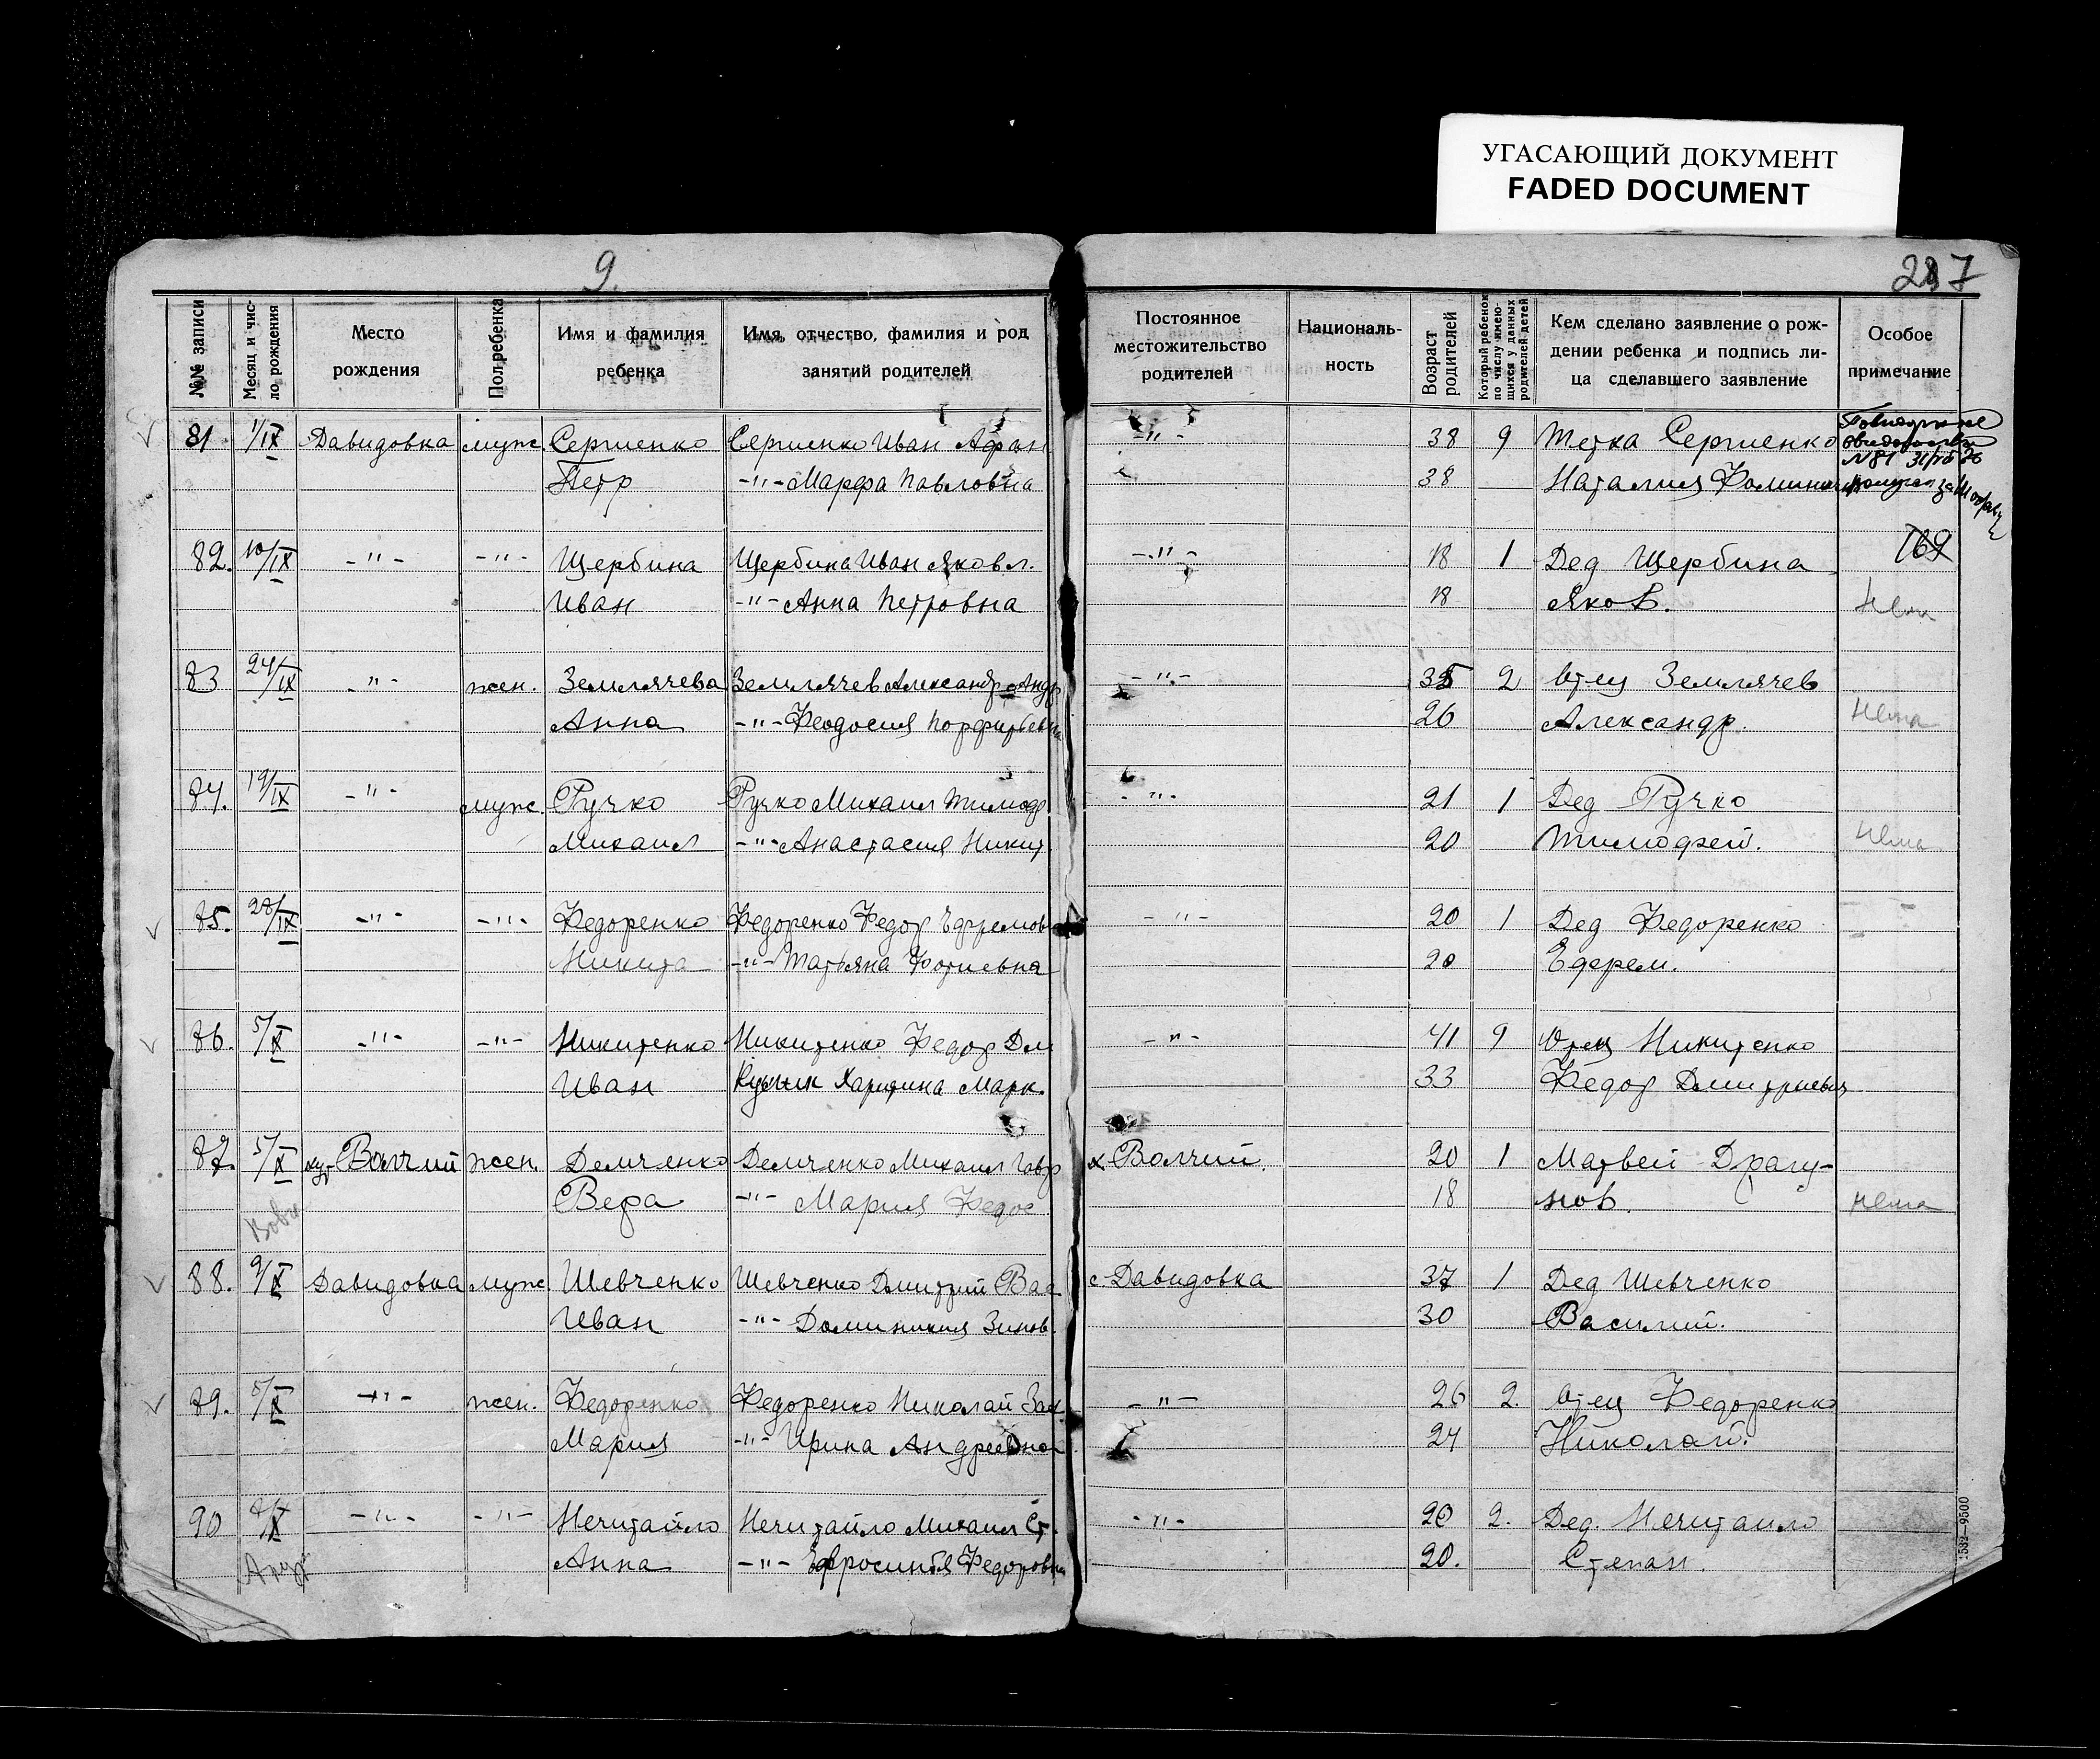 УГАСАЮЩИЙ ДОКУМЕНТ
FADED DOCUMENT
9.
287
№№ записи
Месяц и число рождения
Место рождения
Пол ребенка
Имя и фамилия ребенка
Имя, отчество, фамилия и род занятий родителей
Постоянное местожительство родителей
Националь-ность
Возраст родителей
Который ребенок по числу имею-щихся у данных родителей детей
Кем сделано заявление о рож-дении ребенка и подпись ли-ца сделавшего заявление
Особое примечание
81. 1/IX Давидовка муж. Сергиенко Сергиенко Иван Афан -"- 38 9 Тетка Сергиенко
Петр -"- Марфа Павловна 38 Наталия
№81
82. 10/IX -"- -"- Щербина Щербина Иван Яковл. -"- 18 1 Дед Щербина 769
Иван -"- Анна Петровна 18 Яков. Нема
83 24/IX -"- жен. Землячева Землячев Александр Андр -"- 35 2 Отец Землячев
Анна -"- Феодосия Порфирьевна 26 Александр. Нема
84. 19/IX -"- муж. Ручко Ручко Михаил Тимоф -"- 21 1 Дед Ручко
Михаил -"- Анастасия Никит 20 Тимофей. Нема
85. 28/IX -"- -"- Федоренко Федоренко Федор Ефремов -"- 20 1 Дед Федоренко
Никита -"- Татьяна Фотиевна 20 Ефрем.
86. 5/X -"- -"- Никитенко Никитенко Федор Дм -"- 41 9 Отец Никитенко
Иван Харитина Марк. 33 Федор Дмитриевич
87. 5/X ху. Волчий жен. Демченко Демченко Михаил Гавр х Волчий. 20 1 Матвей Драгу-
Вера -"- Мария Федос 18 нов. нема
88. 9/X Давидовка муж. Шевченко Шевченко Дмитрий Вас с Давидовка 37 1 Дед Шевченко
Иван -"- Доминикия Зинов. 30 Василий.
89. 5/X -"- жен. Федоренко Федоренко Николай Зах. -"- 26 2. Отец Федоренко
Мария -"- Ирина Андреевна 24 Николай.
90 -"- -"- Нечитайло Нечитайло Михаил Ст. -"- 20 2. Дед. Нечитайло
Анна -"- Ефросиния Федоровна 20. Степан.
1532—9500